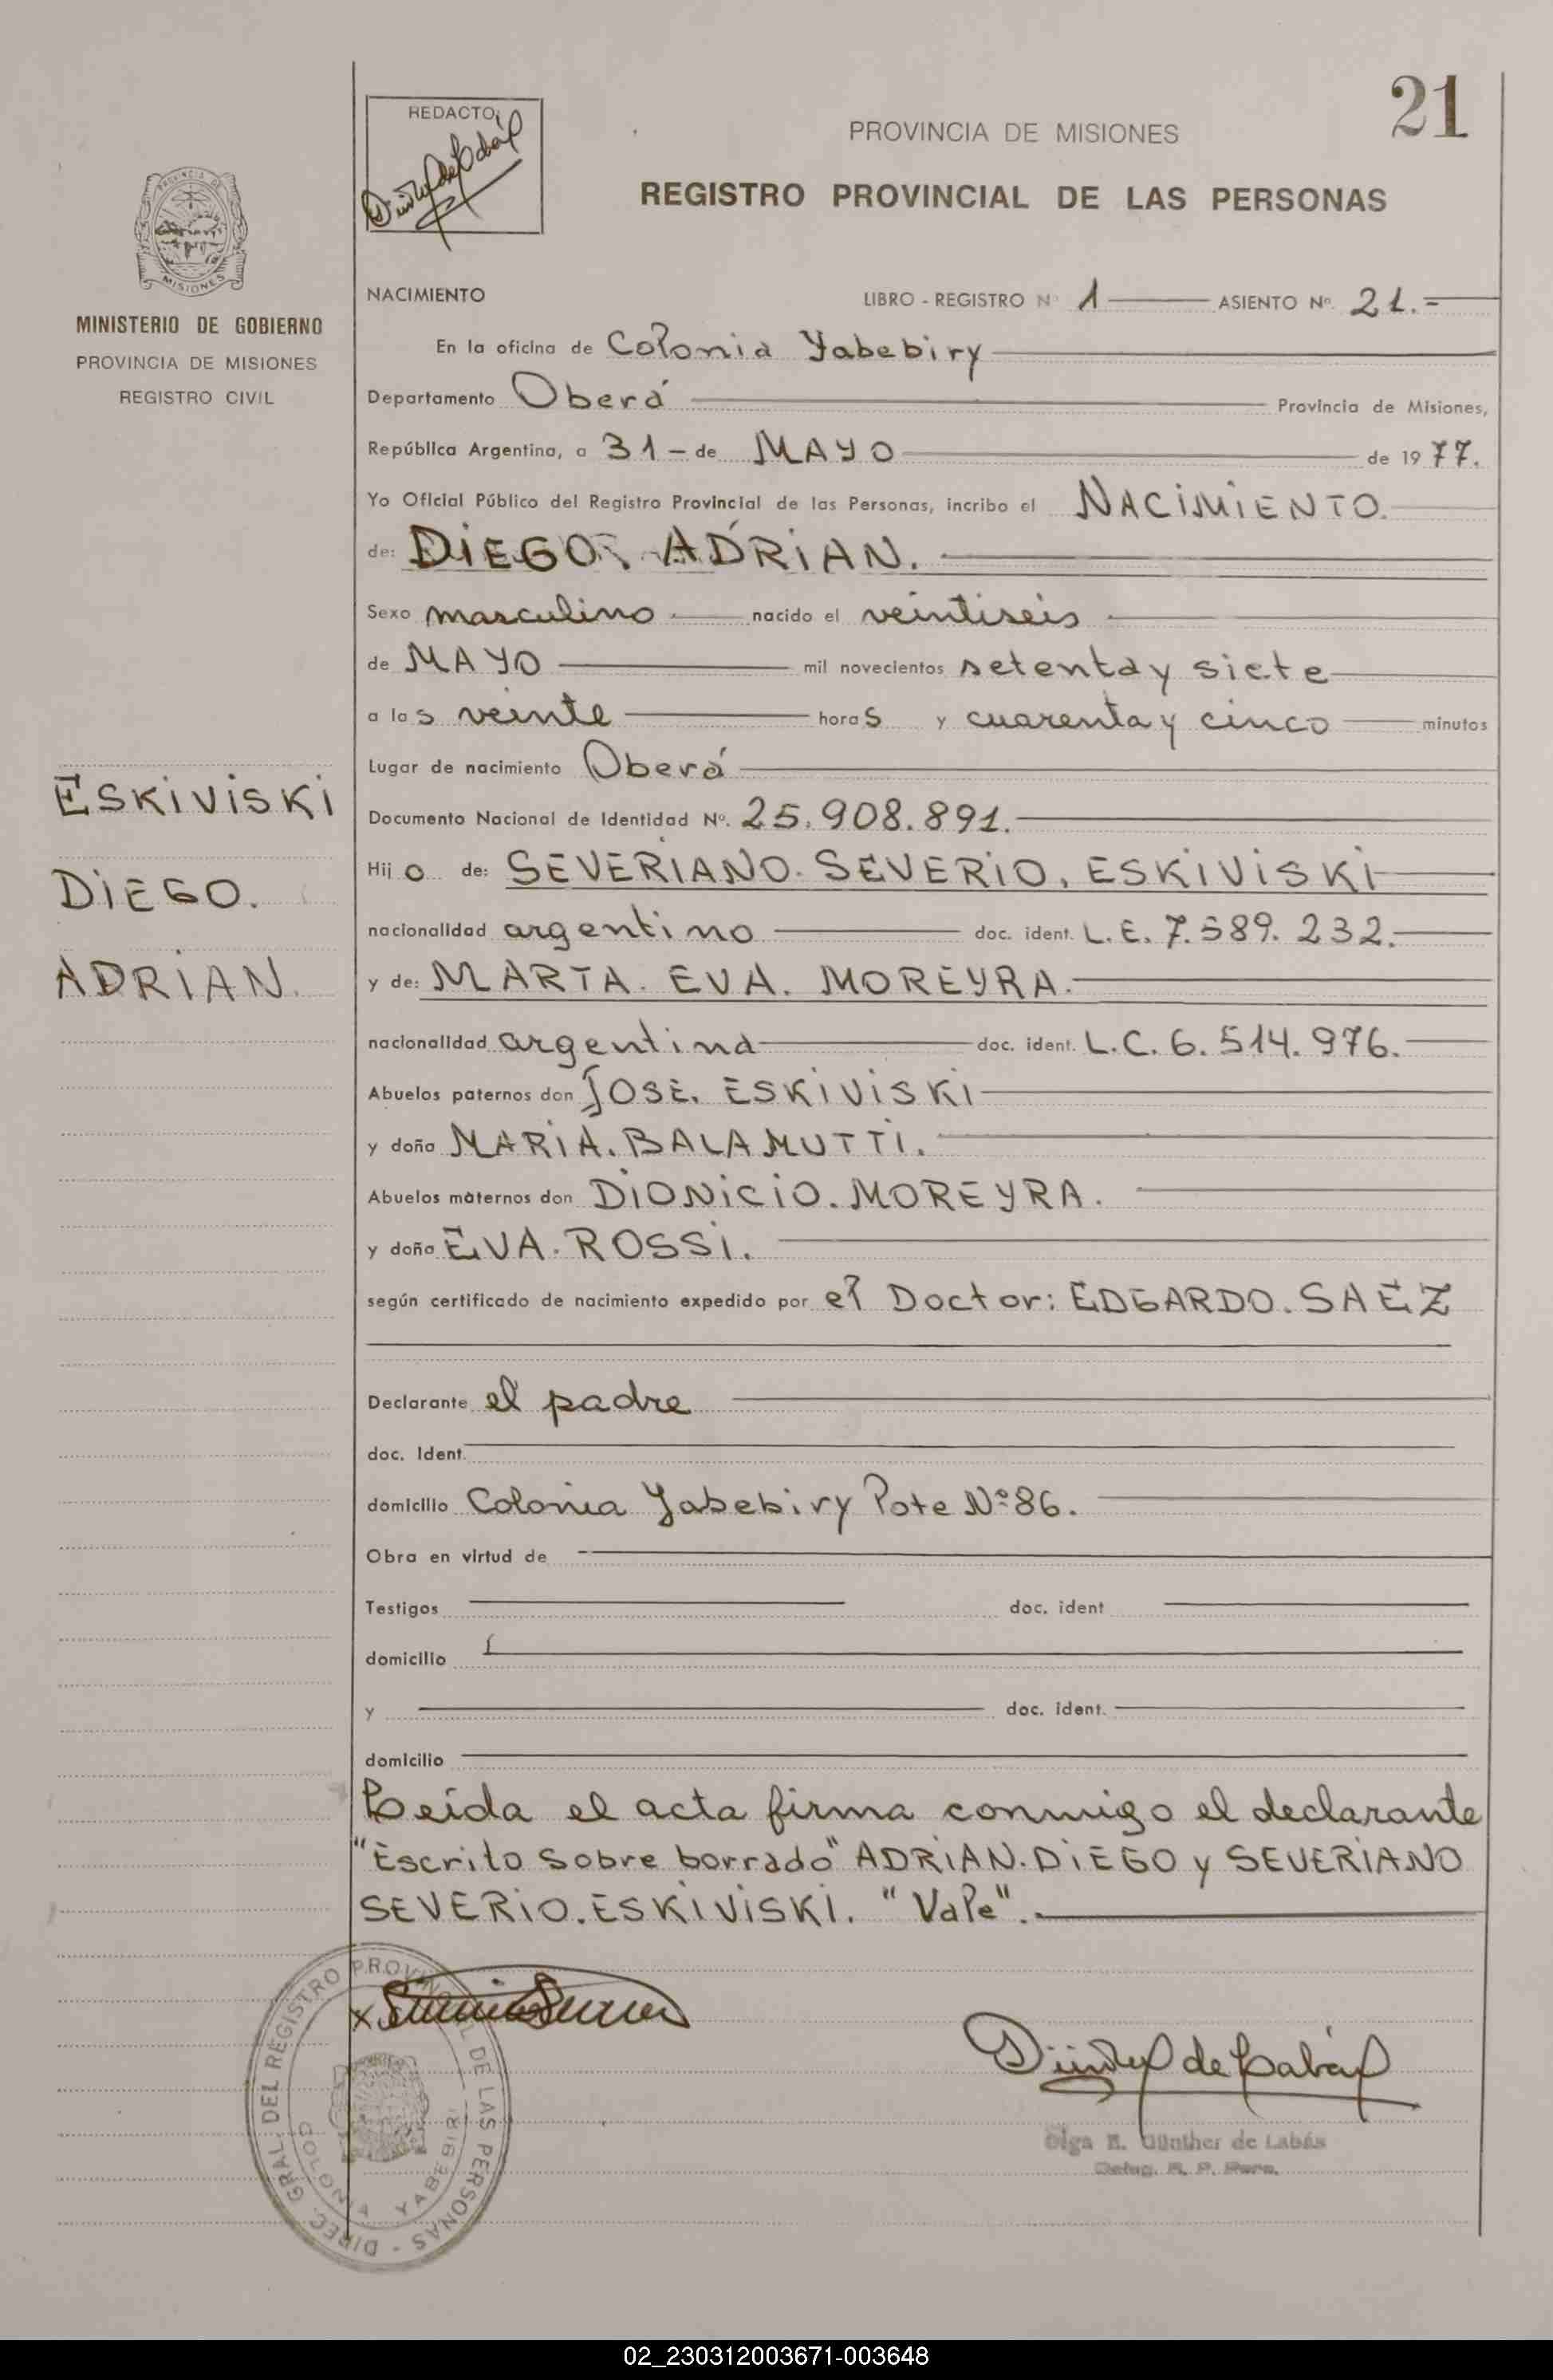 21
REDACTO:
PROVINCIA DE MISIONES
REGISTRO PROVINCIAL DE LAS PERSONAS
PROVINCIA DE
MISIONES
MINISTERIO DE GOBIERNO
PROVINCIA DE MISIONES
REGISTRO CIVIL
NACIMIENTO LIBRO - REGISTRO Nº 1 ASIENTO Nº. 21.=
En la oficina de Colonia Yabebiry
Departamento Oberá Provincia de Misiones,
República Argentina, a 31 - de MAYO de 1977.
Yo Oficial Público del Registro Provincial de las Personas, incribo el NACIMIENTO.
de: DIEGO. ADRIAN.
Sexo masculino nacido el veintiseis
de MAYO mil novecientos setenta y siete
a las veinte horas y cuarenta y cinco minutos
Lugar de nacimiento Oberá
ESKIVISKI
DIEGO.
ADRIAN.
Documento Nacional de Identidad Nº. 25.908.891.
Hijo de: SEVERIANO. SEVERIO. ESKIVISKI
nacionalidad argentino doc. ident. L.E. 7.589.232.
y de: MARTA. EVA. MOREYRA.
nacionalidad argentina doc. ident. L.C. 6.514.976.
Abuelos paternos don JOSE. ESKIVISKI
y doña MARIA. BALAMUTTI.
Abuelos maternos don DIONICIO. MOREYRA.
y doña EVA. ROSSI.
según certificado de nacimiento expedido por el Doctor: EDGARDO. SAEZ
Declarante el padre
doc. Ident.
domicilio Colonia Yabebiry Lote Nº 86.
Obra en virtud de
Testigos doc. ident
domicilio
y doc. ident.
domicilio
Leida el acta firma conmigo el declarante
"Escrito sobre borrado" ADRIAN. DIEGO y SEVERIANO
SEVERIO. ESKIVISKI. "Vale".
DIREC. GRAL. DEL REGISTRO PROVINCIAL DE LAS PERSONAS -
COLONIA YABEBIRI
Olga E. Günther de Labás
02_230312003671-003648